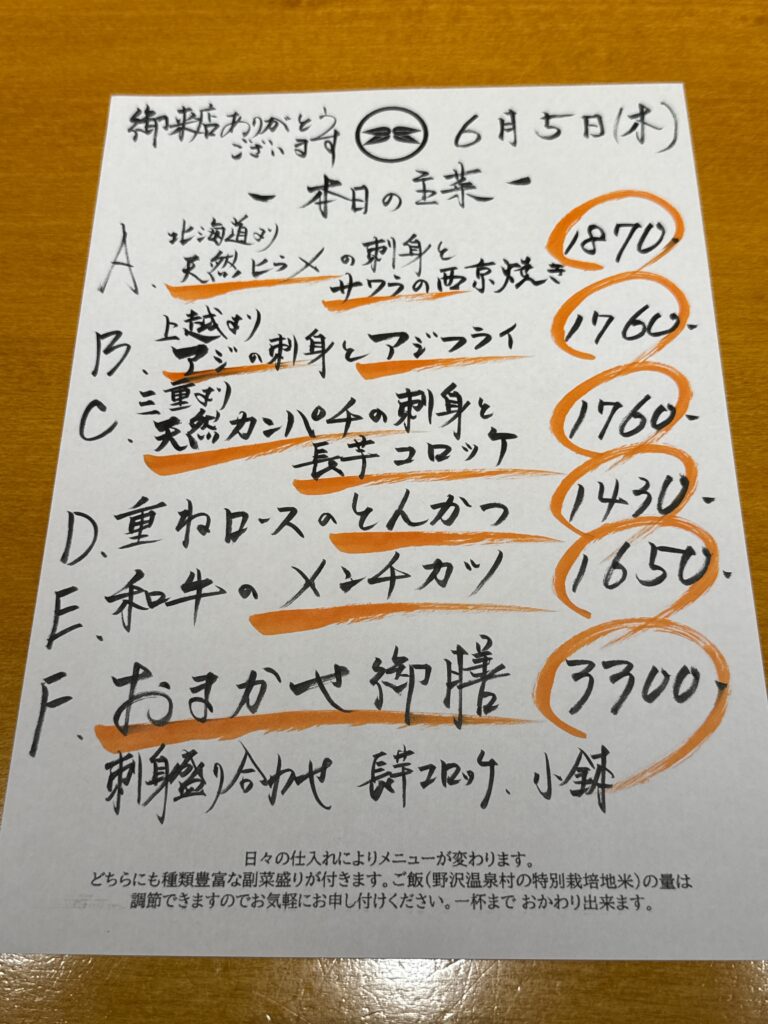 御来店ありがとう
ございます
6月5日(木)
ー本日の主菜ー
A. 北海道より
天然ヒラメの刺身と
サワラの西京焼き 1870.
B. 上越より
アジの刺身とアジフライ 1760.
C. 三重より
天然カンパチの刺身と
長芋コロッケ 1760.
D. 重ねロースのとんかつ 1430.
E. 和牛のメンチカツ 1650.
F. おまかせ御膳 3300.
刺身盛り合わせ 長芋コロッケ、小鉢
日々の仕入れによりメニューが変わります。
どちらにも種類豊富な副菜盛りが付きます。ご飯(野沢温泉村の特別栽培地米)の量は
調節できますのでお気軽にお申し付けください。一杯まで おかわり出来ます。